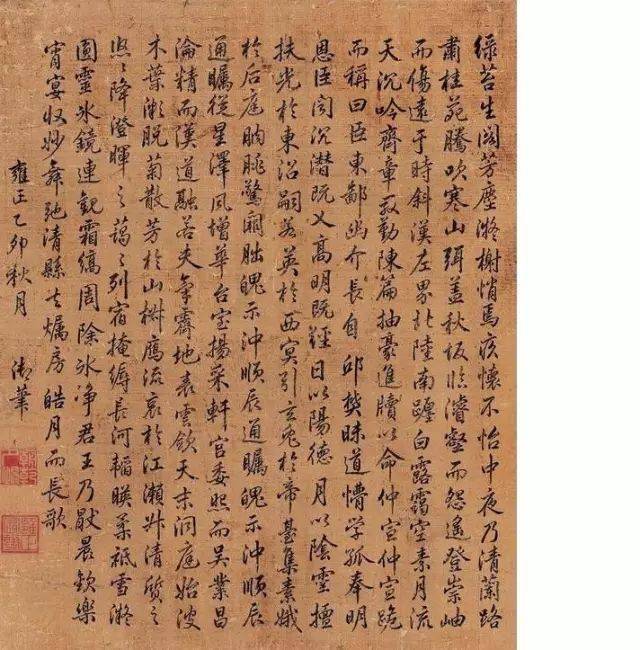 綠苔生閣芳塵凝榭悄焉疚懷不怡中夜乃清蘭路
肅桂苑騰吹寒山弭蓋秋坂臨濬壑而怨遙登崇岫
而傷遠于時斜漢左界北陸南躔白露靄空素月流
天沉吟齊章殷勤陳篇抽豪進牘以命仲宣仲宣跪
而稱曰臣東鄙幽介長自邱樊昧道懵學孤奉明
恩臣聞沉潛既乂高明既經日以陽德月以陰靈擅
扶光於東沼嗣若英於西冥引玄兔於帝臺集素娥
於后庭朒脁驚闕朏魄示沖順辰通矚魄示沖順辰
通矚從星澤風增華台室揚采軒宮委照而吳業昌
淪精而漢道融若夫氣霽地表雲斂天末洞庭始波
木葉漸脫菊散芳於山椒鴈流哀於江瀨升清質之
悠〻降澄暉之藹〻列宿掩縟長河韜暎柔祇雪凝
圓靈氷鏡連觀霜縞周除氷淨君王乃厭晨歡樂
宵宴收妙舞弛清縣去燭房皓月而長歌
雍正乙卯秋月 御筆